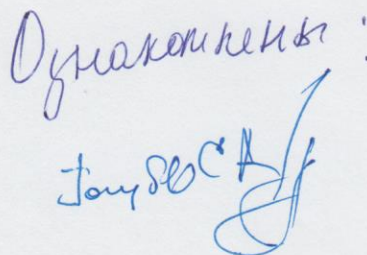 Ознакомлены:
Голубев С А